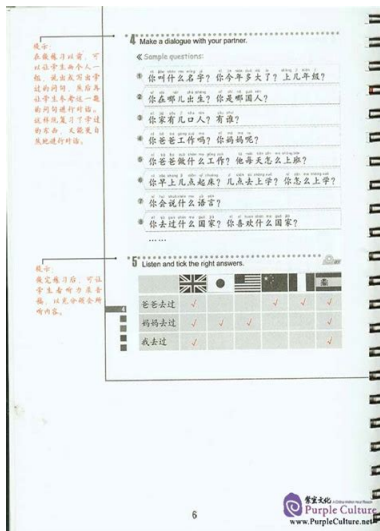 提示：
在做练习以前，可
以让学生两个人一
组，说出或写出学
过的问句，然后再
让学生参考这一题
的问句进行对话。
4 Make a dialogue with your partner.
Sample questions:
① 你叫什么名字？你今年多大了？上几年级？
② 你在哪儿出生？你是哪国人？
③ 你家有几口人？有谁？
④ 你爸爸工作吗？你妈妈呢？
⑤ 你爸爸做什么工作？他每天怎么上班？
⑥ 你早上几点起床？几点去上学？你怎么上学？
⑦ 你会说什么语言？
⑧ 你去过什么国家？你喜欢什么国家？
……
提示：
做完练习后，可让
学生看听力录音
稿，以充分领会所
听内容。
5 Listen and tick the right answers.
爸爸去过
妈妈去过
我去过
6
紫宣文化
Purple Culture
www.PurpleCulture.net